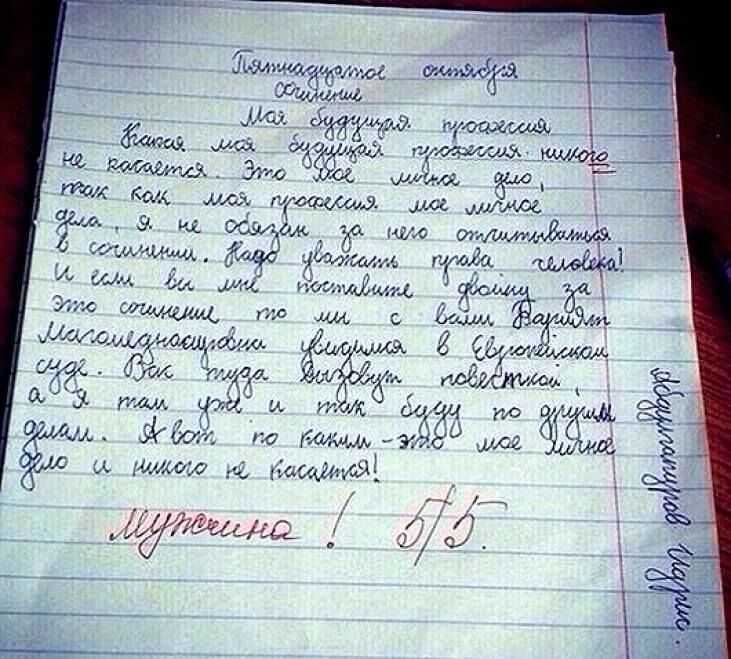 Пятнадцатое октября
Сочинение
Моя будущая профессия
Какая моя будущая профессия никого
не касается. Это мое личное дело,
так как моя профессия мое личное
дела, я не обязан за него отчитываться
в сочинении. Надо уважать права человека!
И если вы мне поставите двойку за
это сочинение то мы с вами Вагият
Магомеднасировна увидимся в Европейском
суде. Вас туда вызовут повесткой,
а я там уже и так буду по другим
делам. А вот по каким – это мое личное
дело и никого не касается!
Мужчина! 5/5.
Абдулгапуров Идрис.